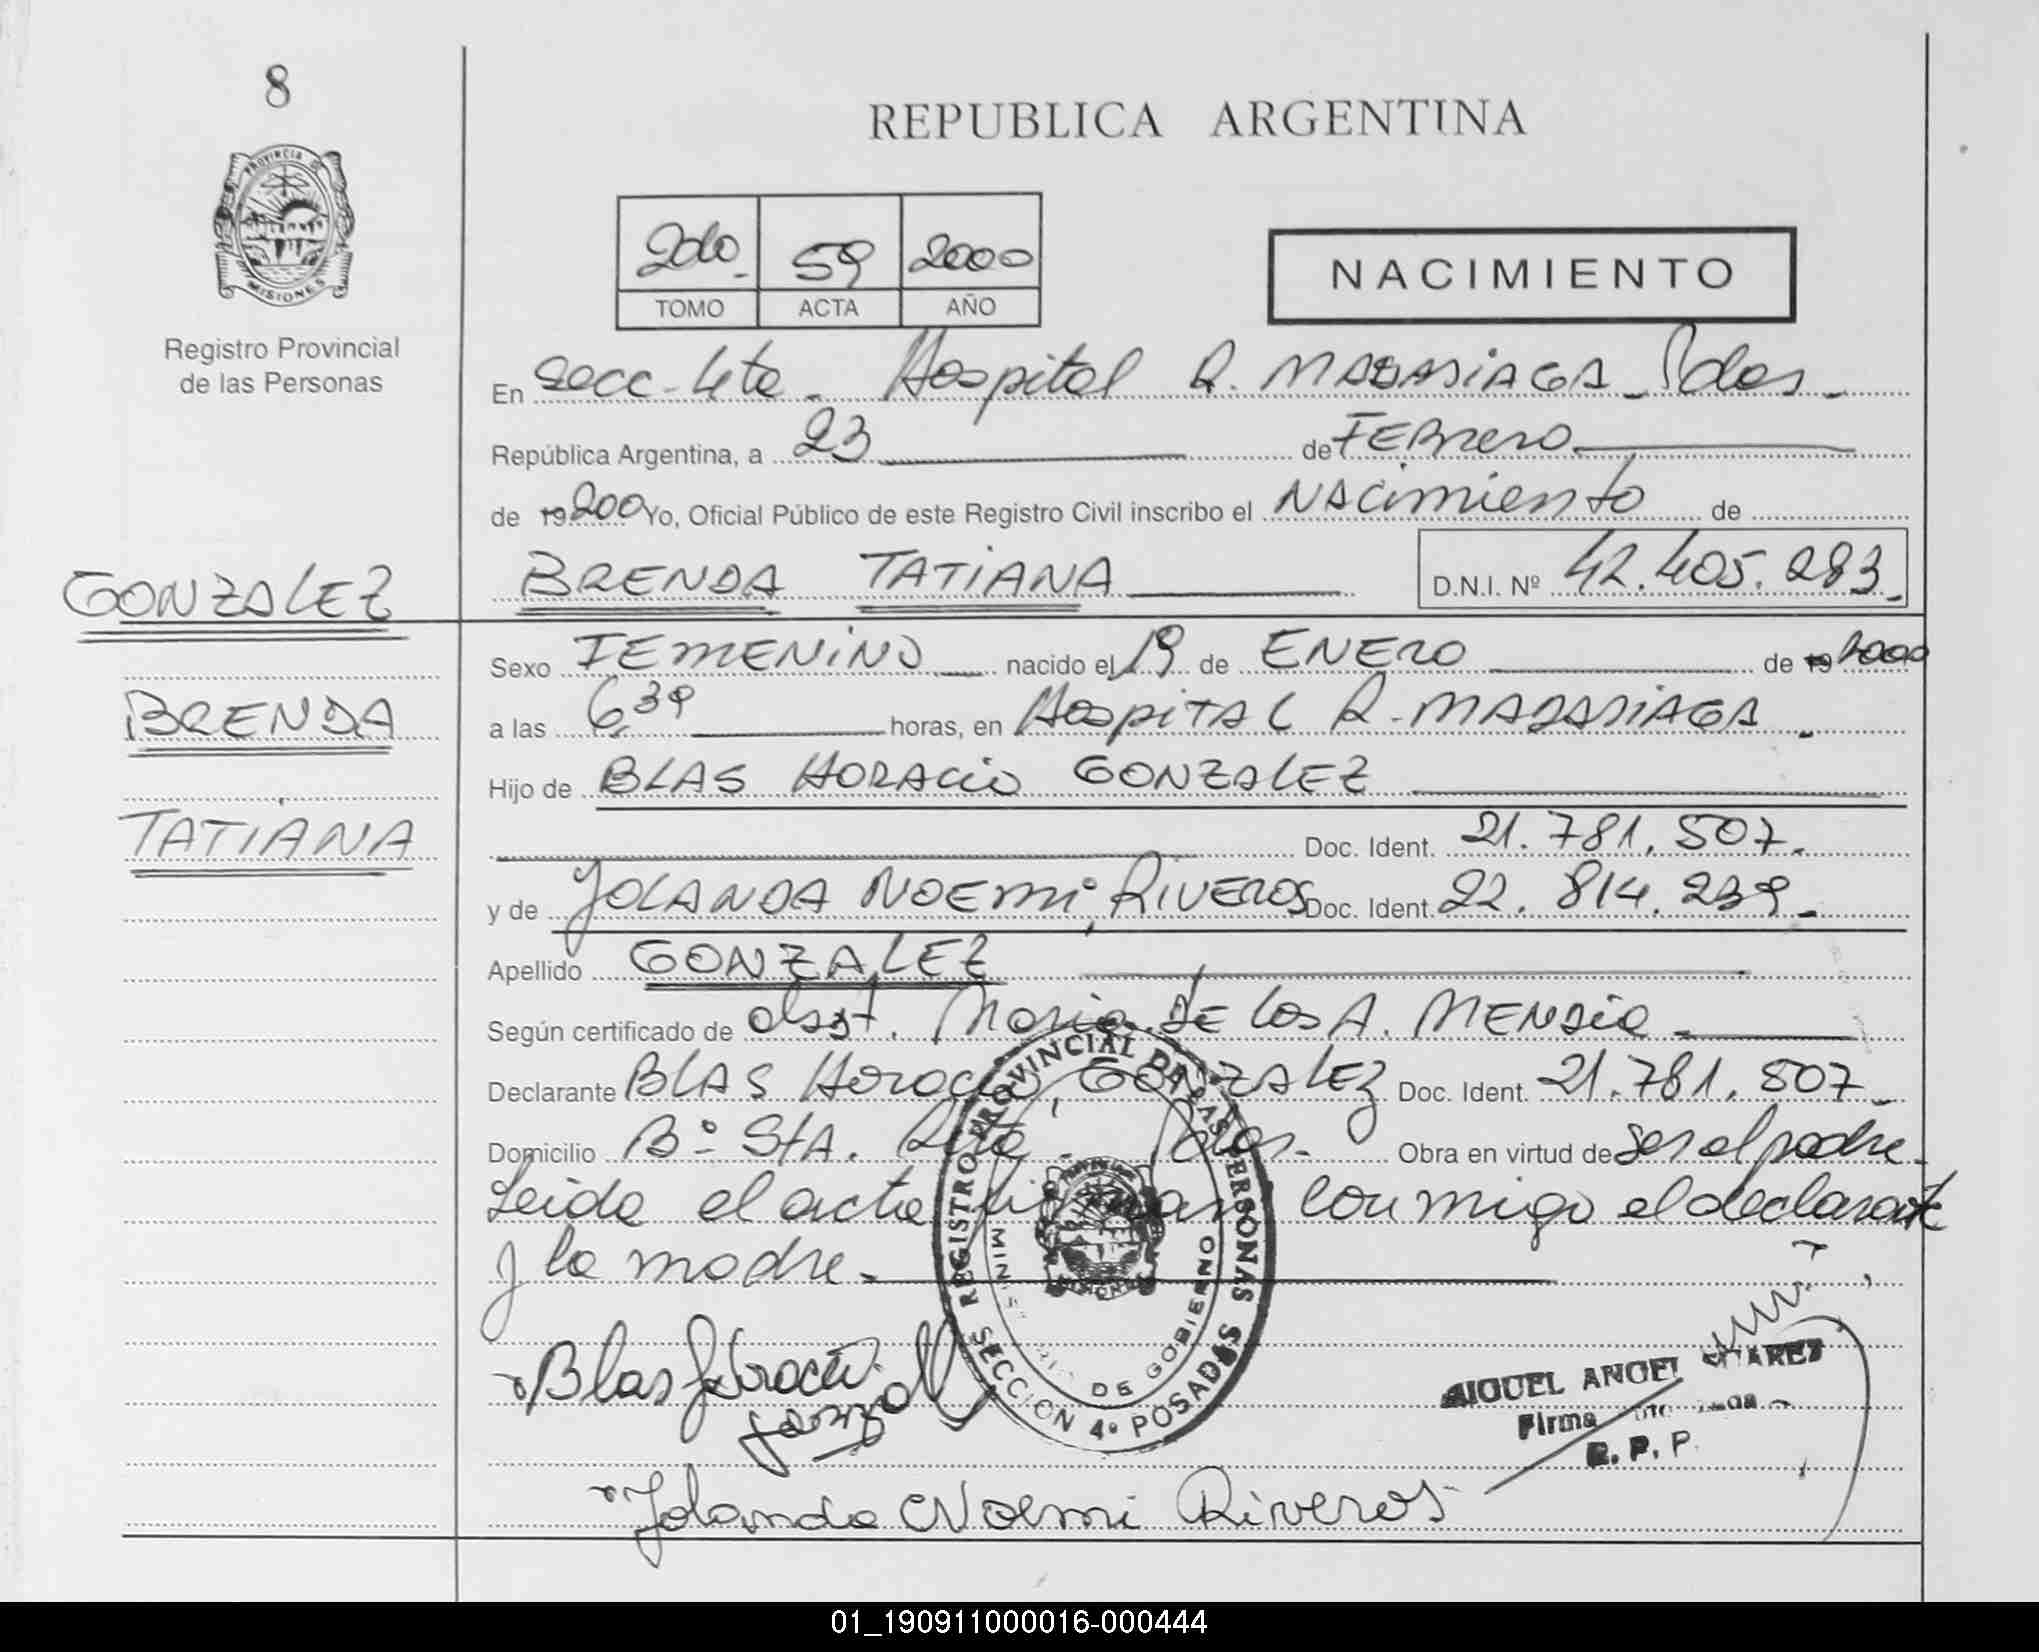 8
PROVINCIA DE
MISIONES
Registro Provincial
de las Personas
REPUBLICA ARGENTINA
2do. 59 2000
TOMO ACTA AÑO
NACIMIENTO
En Secc. 4ta. Hospital R. MADARIAGA - Pdas -
República Argentina, a 23 de FEBrero
de 19 2000 Yo, Oficial Público de este Registro Civil inscribo el NAcimiento de
BRENDA TATIANA D.N.I. Nº 42.405.283.
GONZALEZ
BRENDA
TATIANA
Sexo FEMENINO nacido el 19 de ENERO de 19 2000
a las 6,39 horas, en HOSPITAL R. MADARIAGA.
Hijo de BLAS HORACIO GONZALEZ
Doc. Ident. 21.781.507.
y de YOLANDA NOEMI RIVEROS Doc. Ident. 22.814.239.
Apellido GONZALEZ
Según certificado de Obst. Maria DE LOS A. MENDiA
Declarante BLAS Horacio GONZALEZ Doc. Ident. 21.781.507.
Domicilio Bº StA. Rita. Pdas. Obra en virtud de ser el padre.
Leida el acta firman conmigo el declarante
y la madre.
REGISTRO PROVINCIAL DE LAS PERSONAS
MINISTERIO DE GOBIERNO
SECCION 4º POSADAS
Blas Horacio
Gonzalez
MIGUEL ANGEL SUAREZ
Firma
R. P. P.
Yolanda Noemi Riveros
01_190911000016-000444